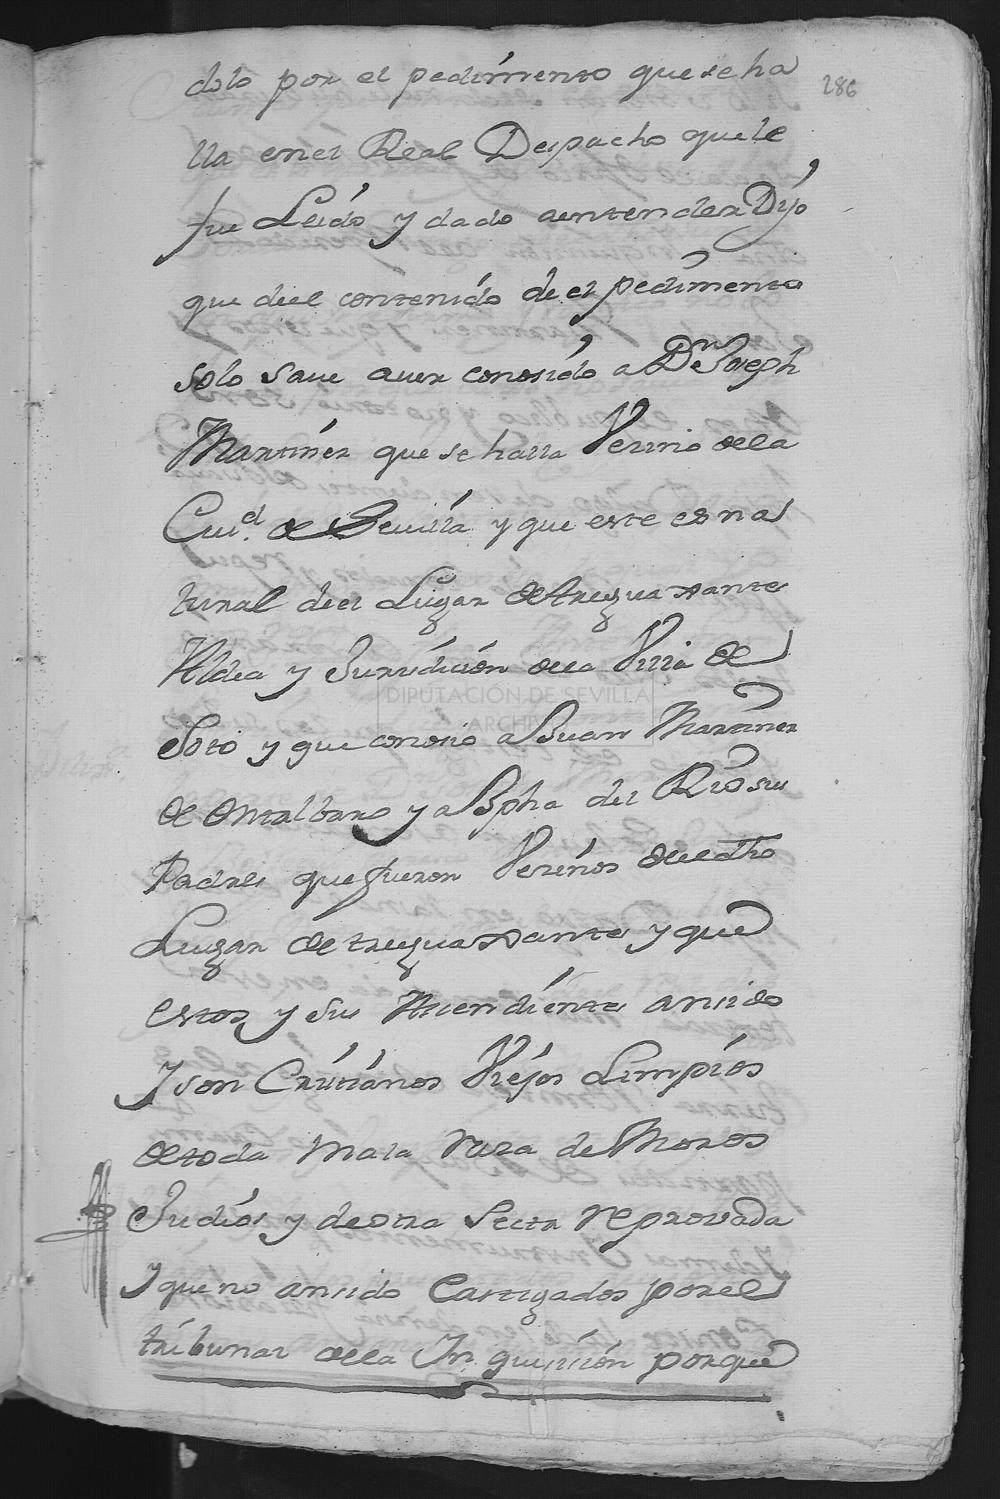 dolo por el pedimento que se ha
286
lla en el Real Despacho que le
fue Leido y dado aentender Dijo
que deel contenido de el pedimento
solo save aver conosido a Dn Joseph
Martines que se halla Vecino dela
Ciud. de Sevilla y que este es na
tural deel Lugar de treguaxantes
Aldea y Juridicion dela Villa de
Soto y que conosio a Juan Martines
de Ontalbaro y a Jpha del Rio sus
Padres que fueron Vecinos deedho
Lugar de treguaxantes y que
estos y sus Asendientes an sido
Y son Cristianos Viejos Limpios
de toda Mala Rasa de Moros
Judios y deotra Secta Reprovada
Y que no an sido Castigados por el
tribunal dela Inquisision porque
DIPUTACIÓN DE SEVILLA
ARCHIVO